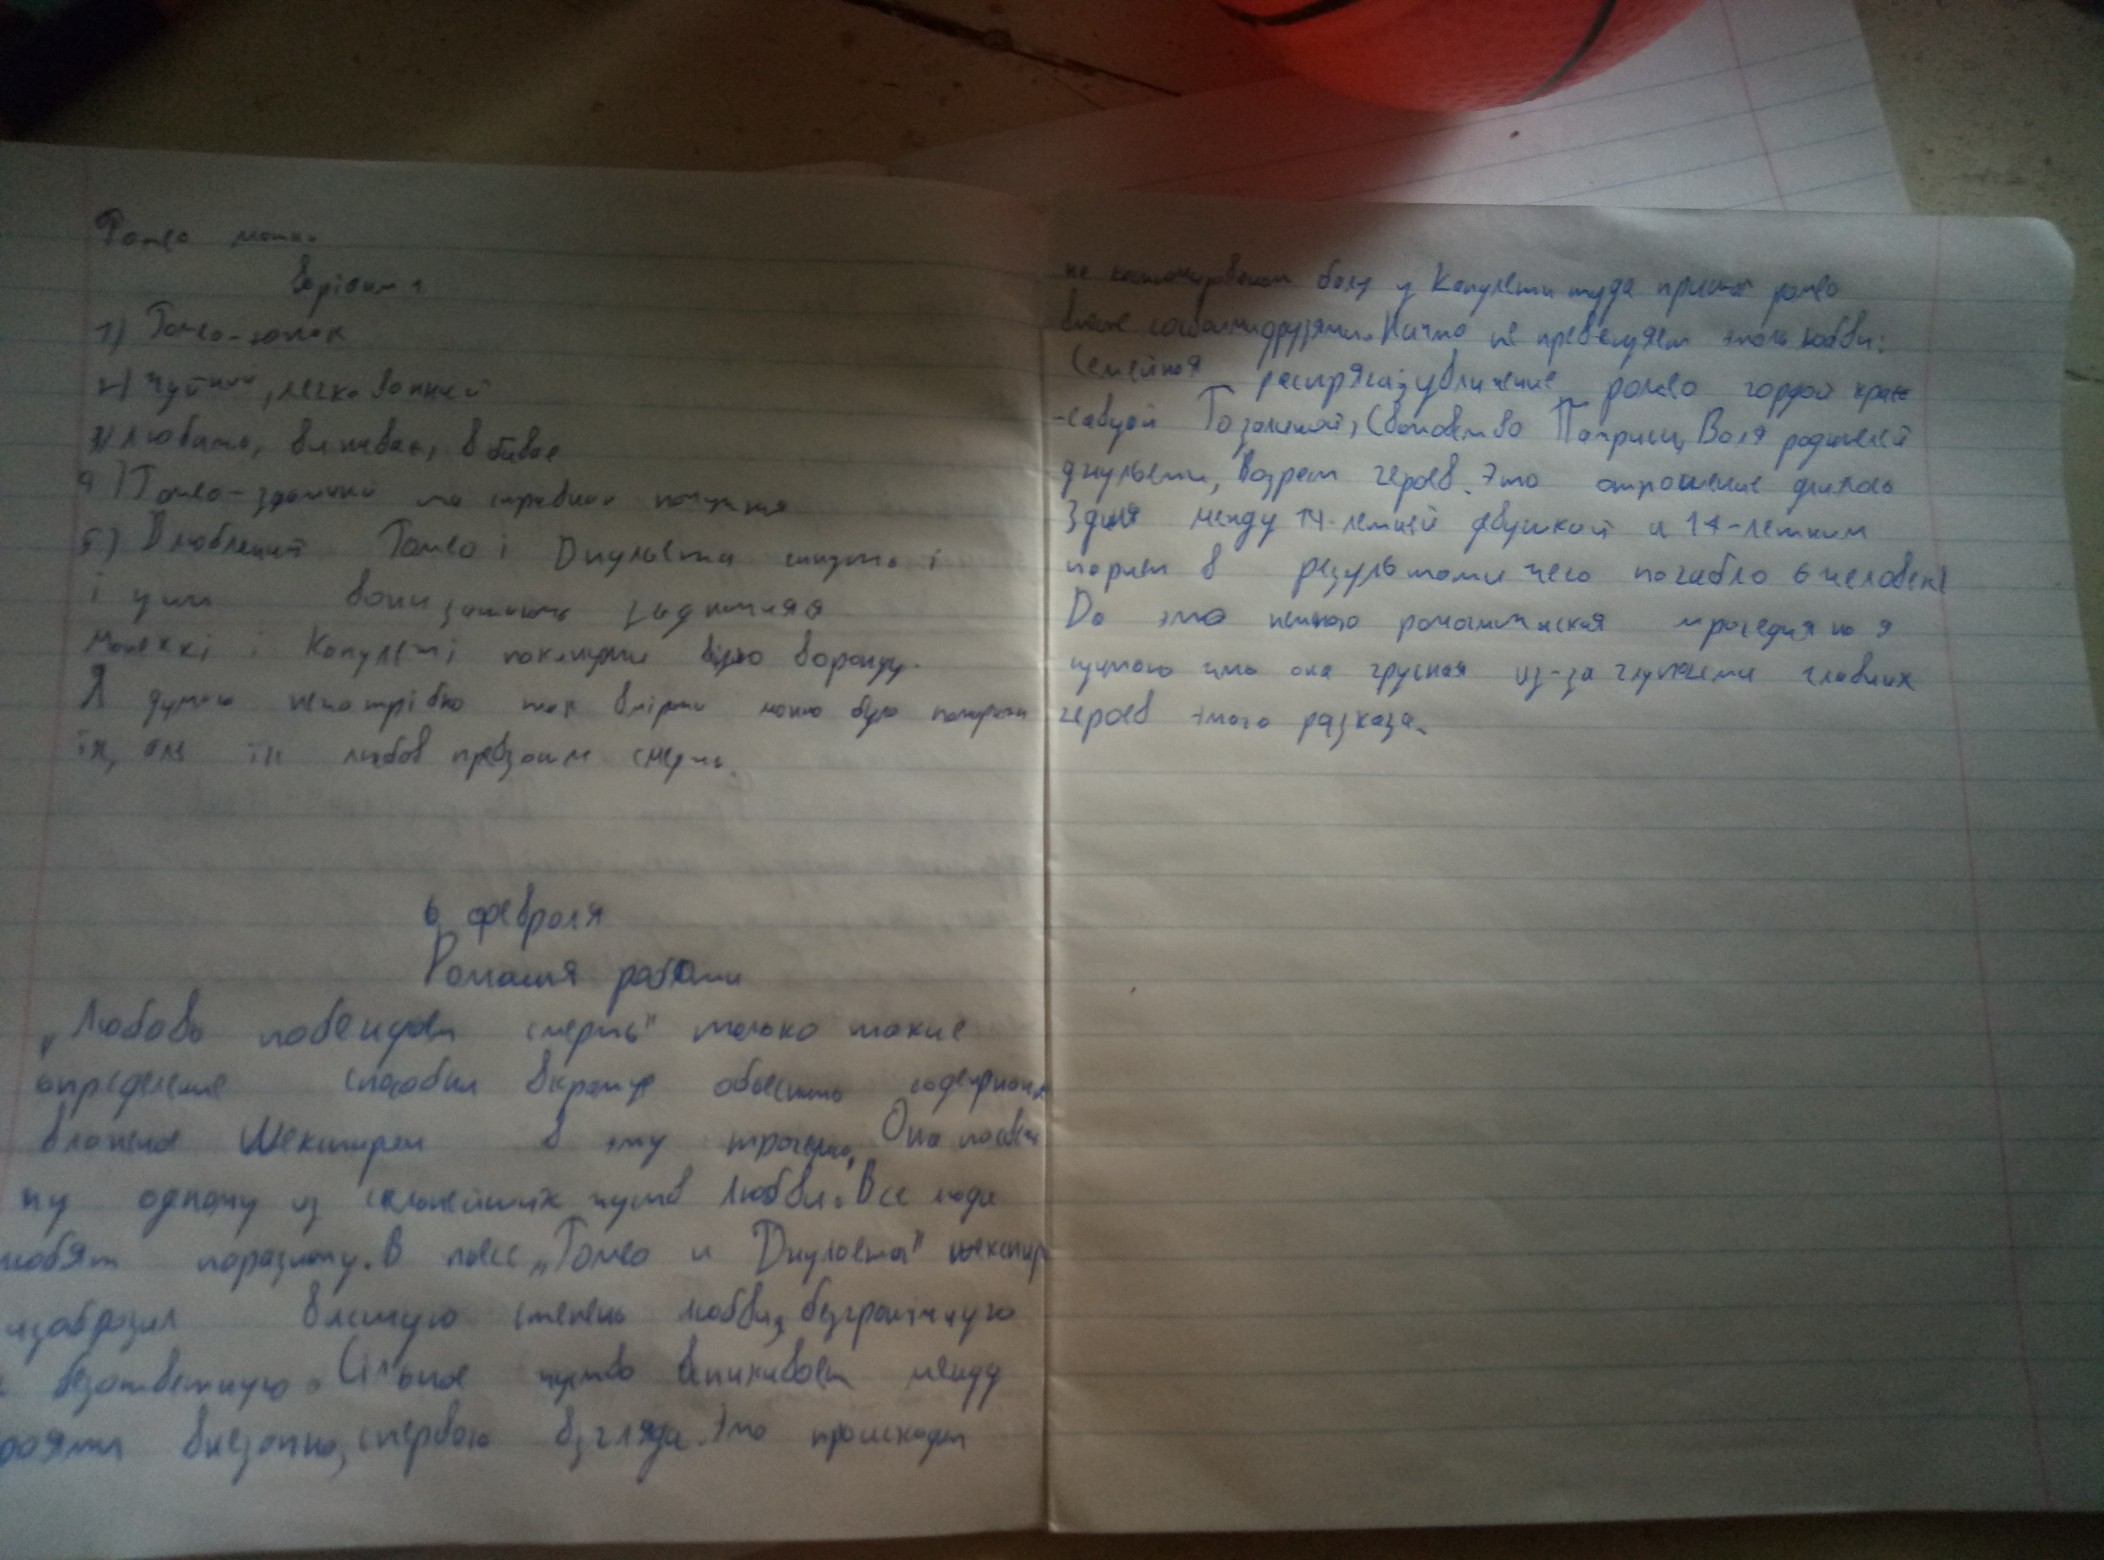 Ромео
Варіант 1
1) Ромео-юнак
2) Чуйний, легковажний
3) Любить, вживає, вбиває
4) Ромео-здатний на справжні почуття
5) Влюблений Ромео і Джульєта гинуть і
і цим вони
Монеккі і Капулєті покинути ворожду.
Я думаю непотрібно так вмірати можно було помирити
їх, але їх любов превзошла смерть.
6 февраля
Ромашня работи
„Любовь побеждает смерть" только такие
определение способни вкратце обьеснить содержания
вложеное Шекспиром в эту трагедию. Она посвещ
ну одному из сложнейших чуств любви. Все люди
любят поразному. В песе „Ромео и Джульета" шекспир
изобразил висшую степень любви, безграничную
безответную. Сильное чуство вникивает между
роями внезапно, спервого взгляда. Это происходит
не костюмированом балу у Капулети туда пришол ромео
вместе сосвоимидрузями. Ничто не превелуяет этой любви:
Семейная распряса; уближение ромео гордой крас
-савуей Розалиной, Сватовство Париса, Воля родителей
джульети, Возраст героев. Это отрошение длилось
3 дня между 14-летней девушкой и 17-летним
парнем в результати чего погибло 6 человек!
Do это немного романтическая трагедия но я
щитаю что она грусная из-за глупасти главних
героев этого разказа.